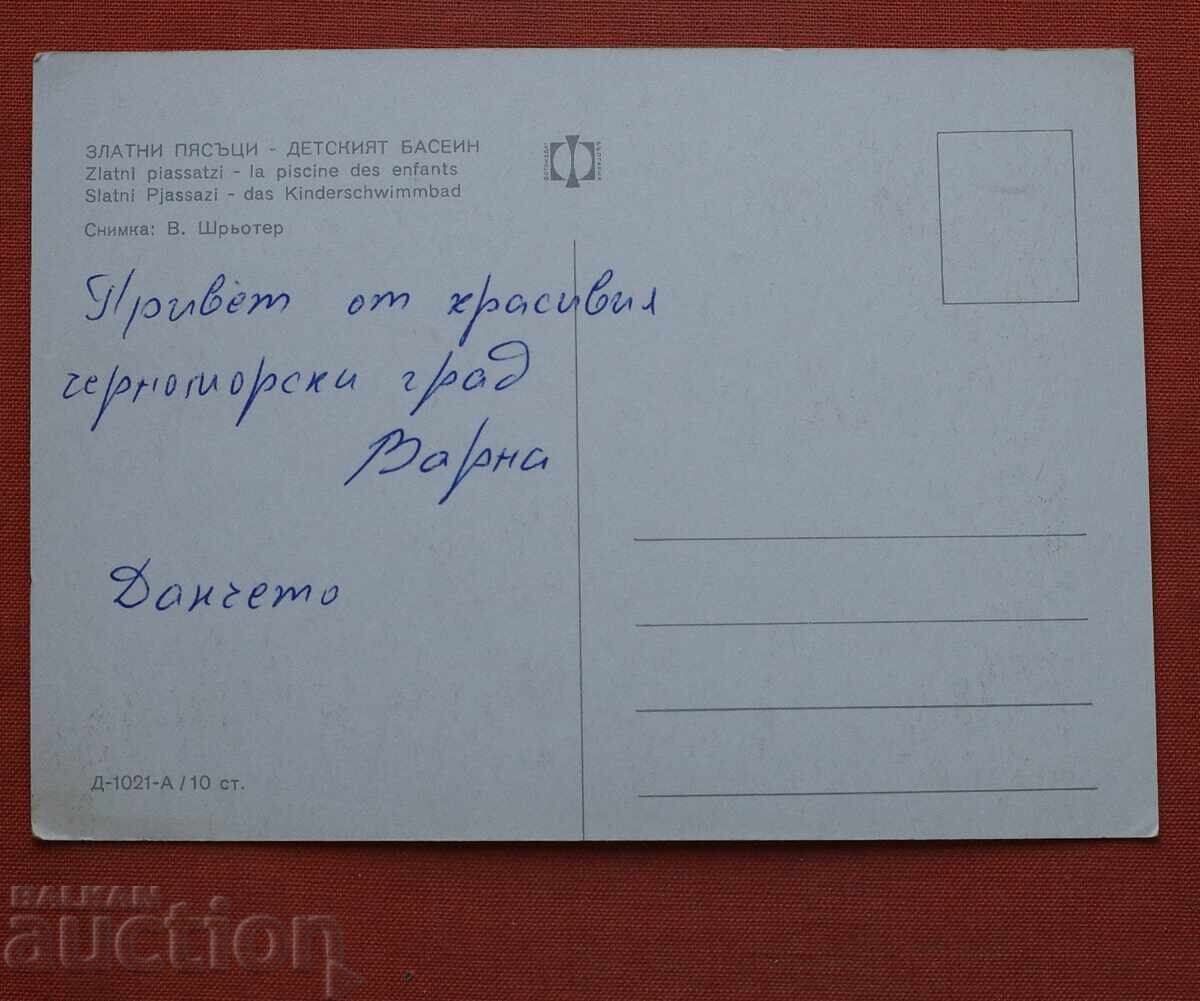 ЗЛАТНИ ПЯСЪЦИ - ДЕТСКИЯТ БАСЕИН
Zlatni piassatzi - la piscine des enfants
Slatni Pjassazi - das Kinderschwimmbad
Снимка: В. Шрьотер
Привет от красивия
черноморски град
Варна
Данчето
Д-1021-А / 10 ст.
BALKAN
auction